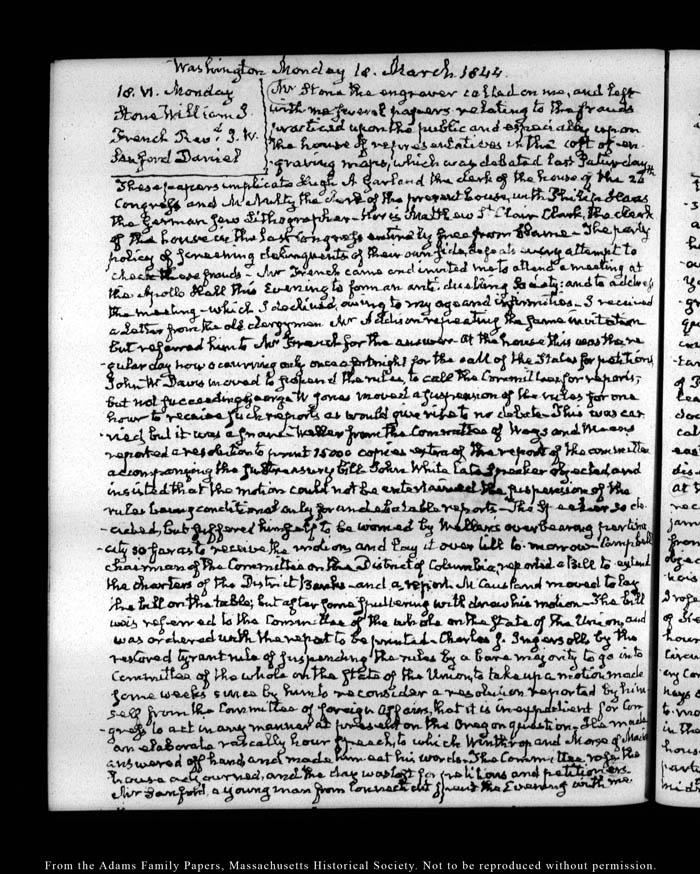 Washington Monday 18. March 1844.
18. VI. Monday
Stone William J.
French Revd. J. W.
Sanford Daniel
Mr Stone the engraver called on me, and left
with me several papers relating to the frauds
practiced upon the public and especially upon
the house of representatives in the cost of en-
graving maps, which was debated last Saturday
These papers implicate Hugh A Garland the clerk of the house of the 26th
Congress and McNulty the clerk of the present house, with Philip Haas
the German Jew Lithographer. Nor is Matthew St Clair Clark, the clerk
of the house in the last Congress entirely free from blame. The party
policy of screening delinquents of their own side, defeats every attempt to
check these frauds. Mr French came and invited me to attend a meeting at
the Apollo Hall this Evening to form an anti-duelling Society; and to address
the meeting. which I declined, owing to my age and infirmities. I received
a Letter from the old clergyman Mr Addison repeating the same invitation
but referred him to Mr French for the answer. At the house this was the re-
gular day now occurring only once a fortnight for the call of the States for petitions
John W. Davis moved to suspend the rules, to call the Committees for reports;
but not succeeding George W Jones moved a suspension of the rules for one
hour to receive such reports as would give rise to no debate. This was car-
ried, but it was a snare. Weller from the Committee of Ways and Means
reported a resolution to print 15000 copies extra of the report of the committee
accompanying the subtreasury bill. John White late Speaker objected and
insisted that the motion could not be entertained the suspension of the
rules being conditional only for undebatable reports. The Speaker so de-
cided, but suffered himself to be worried by Weller's overbearing pertina-
city so far as to receive the motion, and lay it over till to-morrow. Campbell
chairman of the Committee on the District of Columbia, reported a Bill to extend
the charters of the District Banks. and a report. McCausland moved to lay
the bill on the table; but after some spluttering withdrew his motion. The bill
was referred to the Committee of the whole on the State of the Union, and
was ordered with the report to be printed. Charles J. Ingersoll by the
restored tyrant rule of suspending the rules by a bare majority to go into
Committee of the whole on the State of the Union, to take up a motion made
some weeks since by him to reconsider a resolution reported by him-
self from the Committee of foreign Affairs, that it is inexpedient for Con-
gress to act in any manner at present on the Oregon question. He made
an elaborate hour speech, to which Winthrop and Morse of Maine
answered off hand and made him eat his words. The Committee rose the
house adjourned, and the day was lost for petitions and petitioners
Mr Sanford, a young man from Connecticut spent the Evening with me
From the Adams Family Papers, Massachusetts Historical Society. Not to be reproduced without permission.